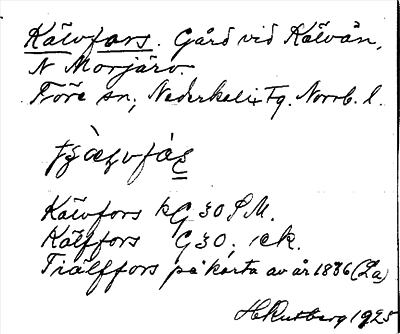 Kälvfors. Gård vid Kälvån,
N Morjärv.
Töre sn, Nederkalix tg. Norrb. l.
Kälvfors kG 30 S M.
Kälffors G30, ick.
Tiälffors på karta av år 1836 (La)
H Rutberg 1925